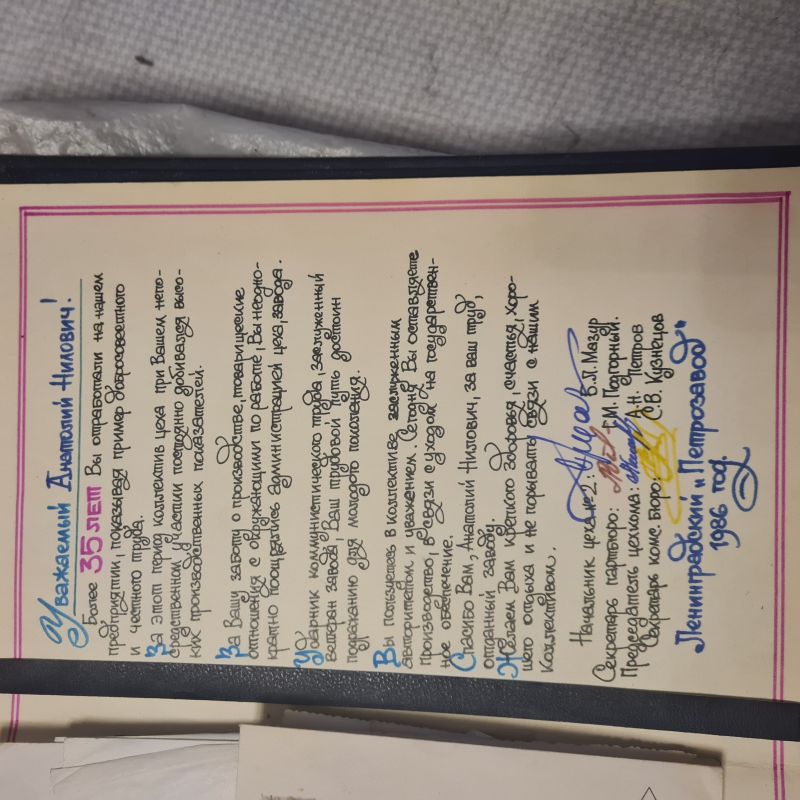 Уважаемый Анатолий Нилович!
Более 35 лет Вы отработали на нашем
предприятии, показывая пример добросовестного
и честного труда.
За этот период коллектив цеха при Вашем непо-
средственном участии постоянно добивался высо-
ких производственных показателей.
За Вашу заботу о производстве, товарищеские
отношения с окружающими по работе, Вы неодно-
кратно поощрялись администрацией цеха, завода.
Ударник коммунистического труда, заслуженный
ветеран завода, Ваш трудовой путь достоин
подражанию для молодого поколения.
Вы пользуетесь в коллективе заслуженным
авторитетом и уважением. Сегодня Вы оставляете
производство, в связи с уходом на государствен-
ное обеспечение.
Спасибо Вам, Анатолий Нилович, за ваш труд,
отданный заводу.
Желаем Вам крепкого здоровья, счастья, хоро-
шего отдыха и не порывать связи с нашим
коллективом.
Начальник цеха №2: В.Л. Мазур
Секретарь партбюро: Г.М. Подгорный.
Председатель цехкома: А.Н. Петров
Секретарь комс. бюро: С.В. Кузнецов
Ленинградский „Петрозавод"
1986 год.